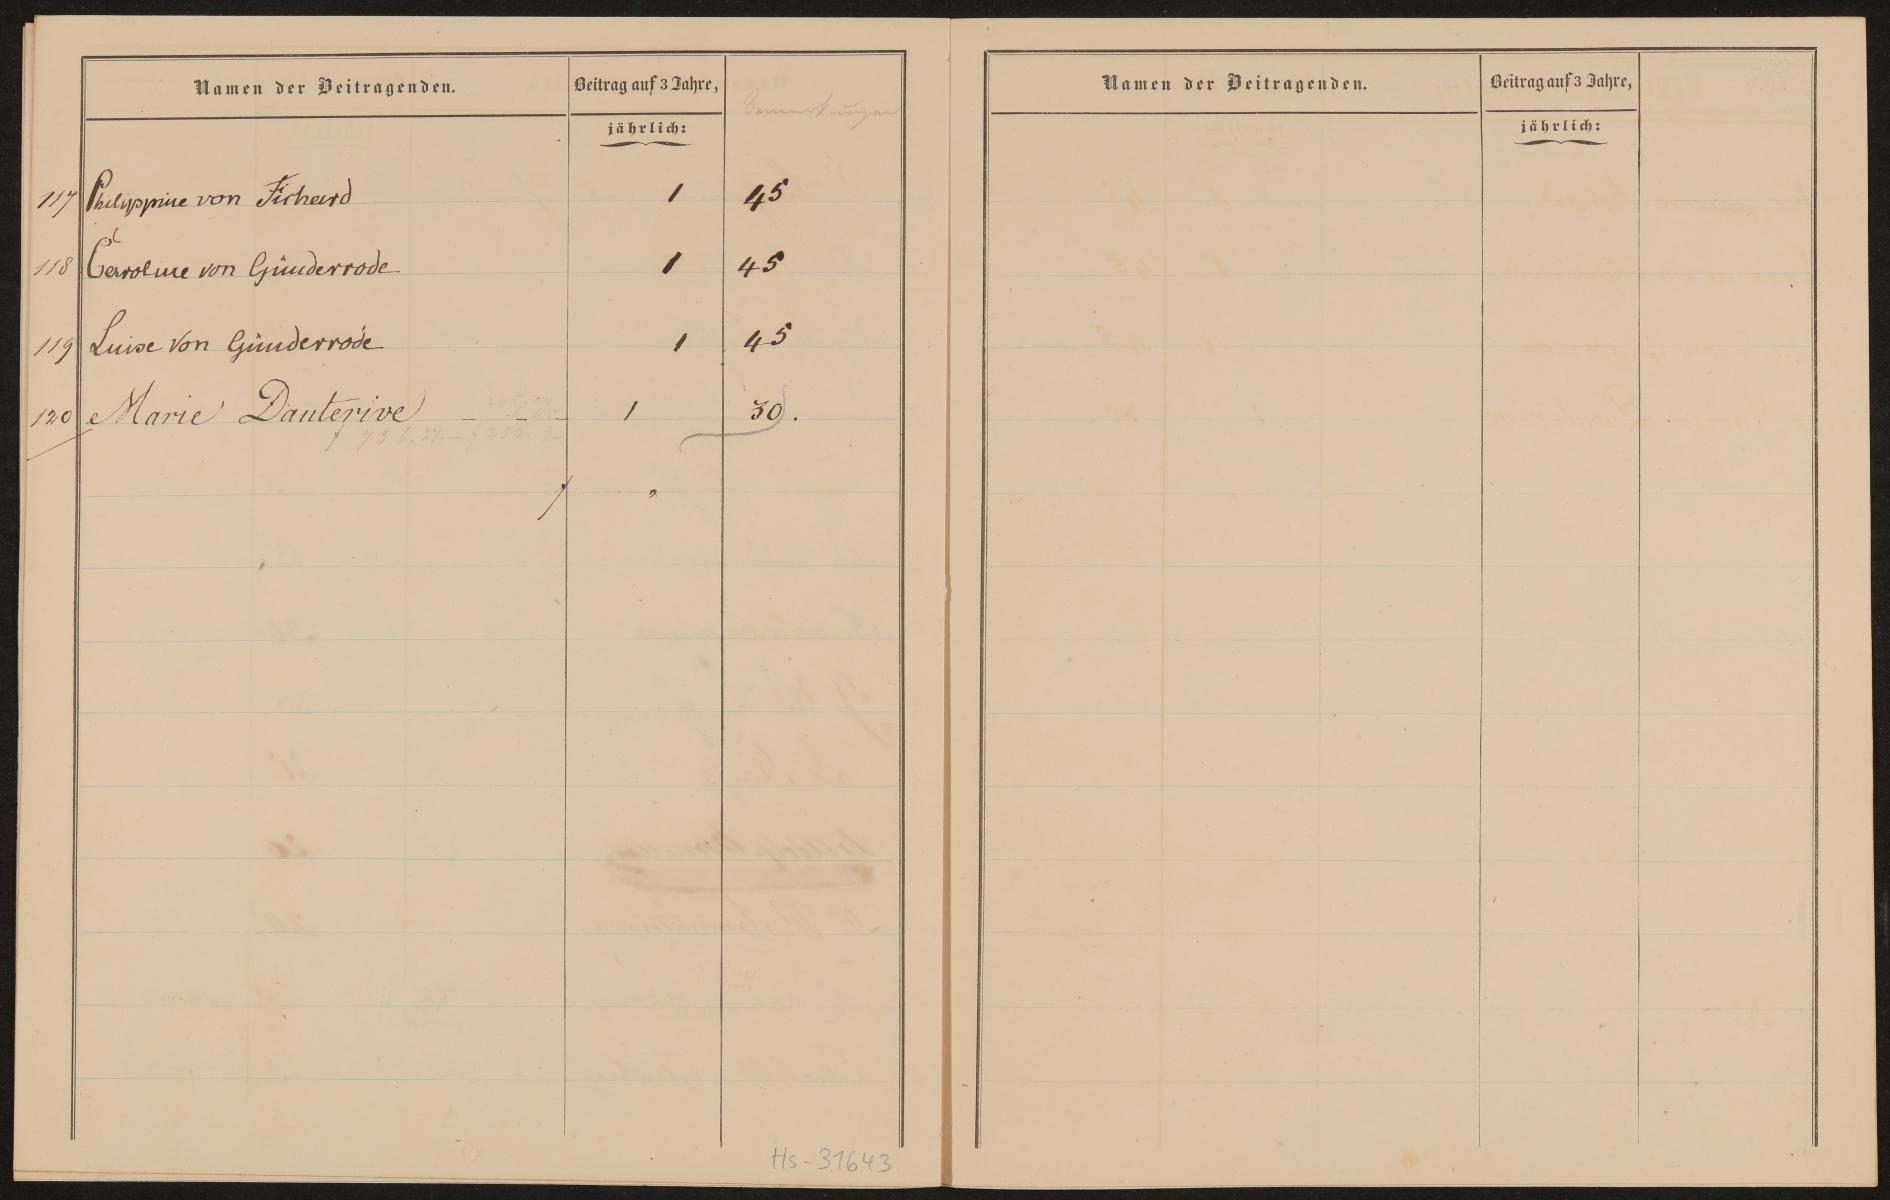 Namen der Beitragenden.
Beitrag auf 3 Jahre,
jährlich:
Bemerkungen
117 Philippine von Fichard 1 45
118 Caroline von Günderrode 1 45
119 Luise von Günderrode 1 45
120 Marie Dauterive 1 30.
Hs-31643
Namen der Beitragenden.
Beitrag auf 3 Jahre,
jährlich: